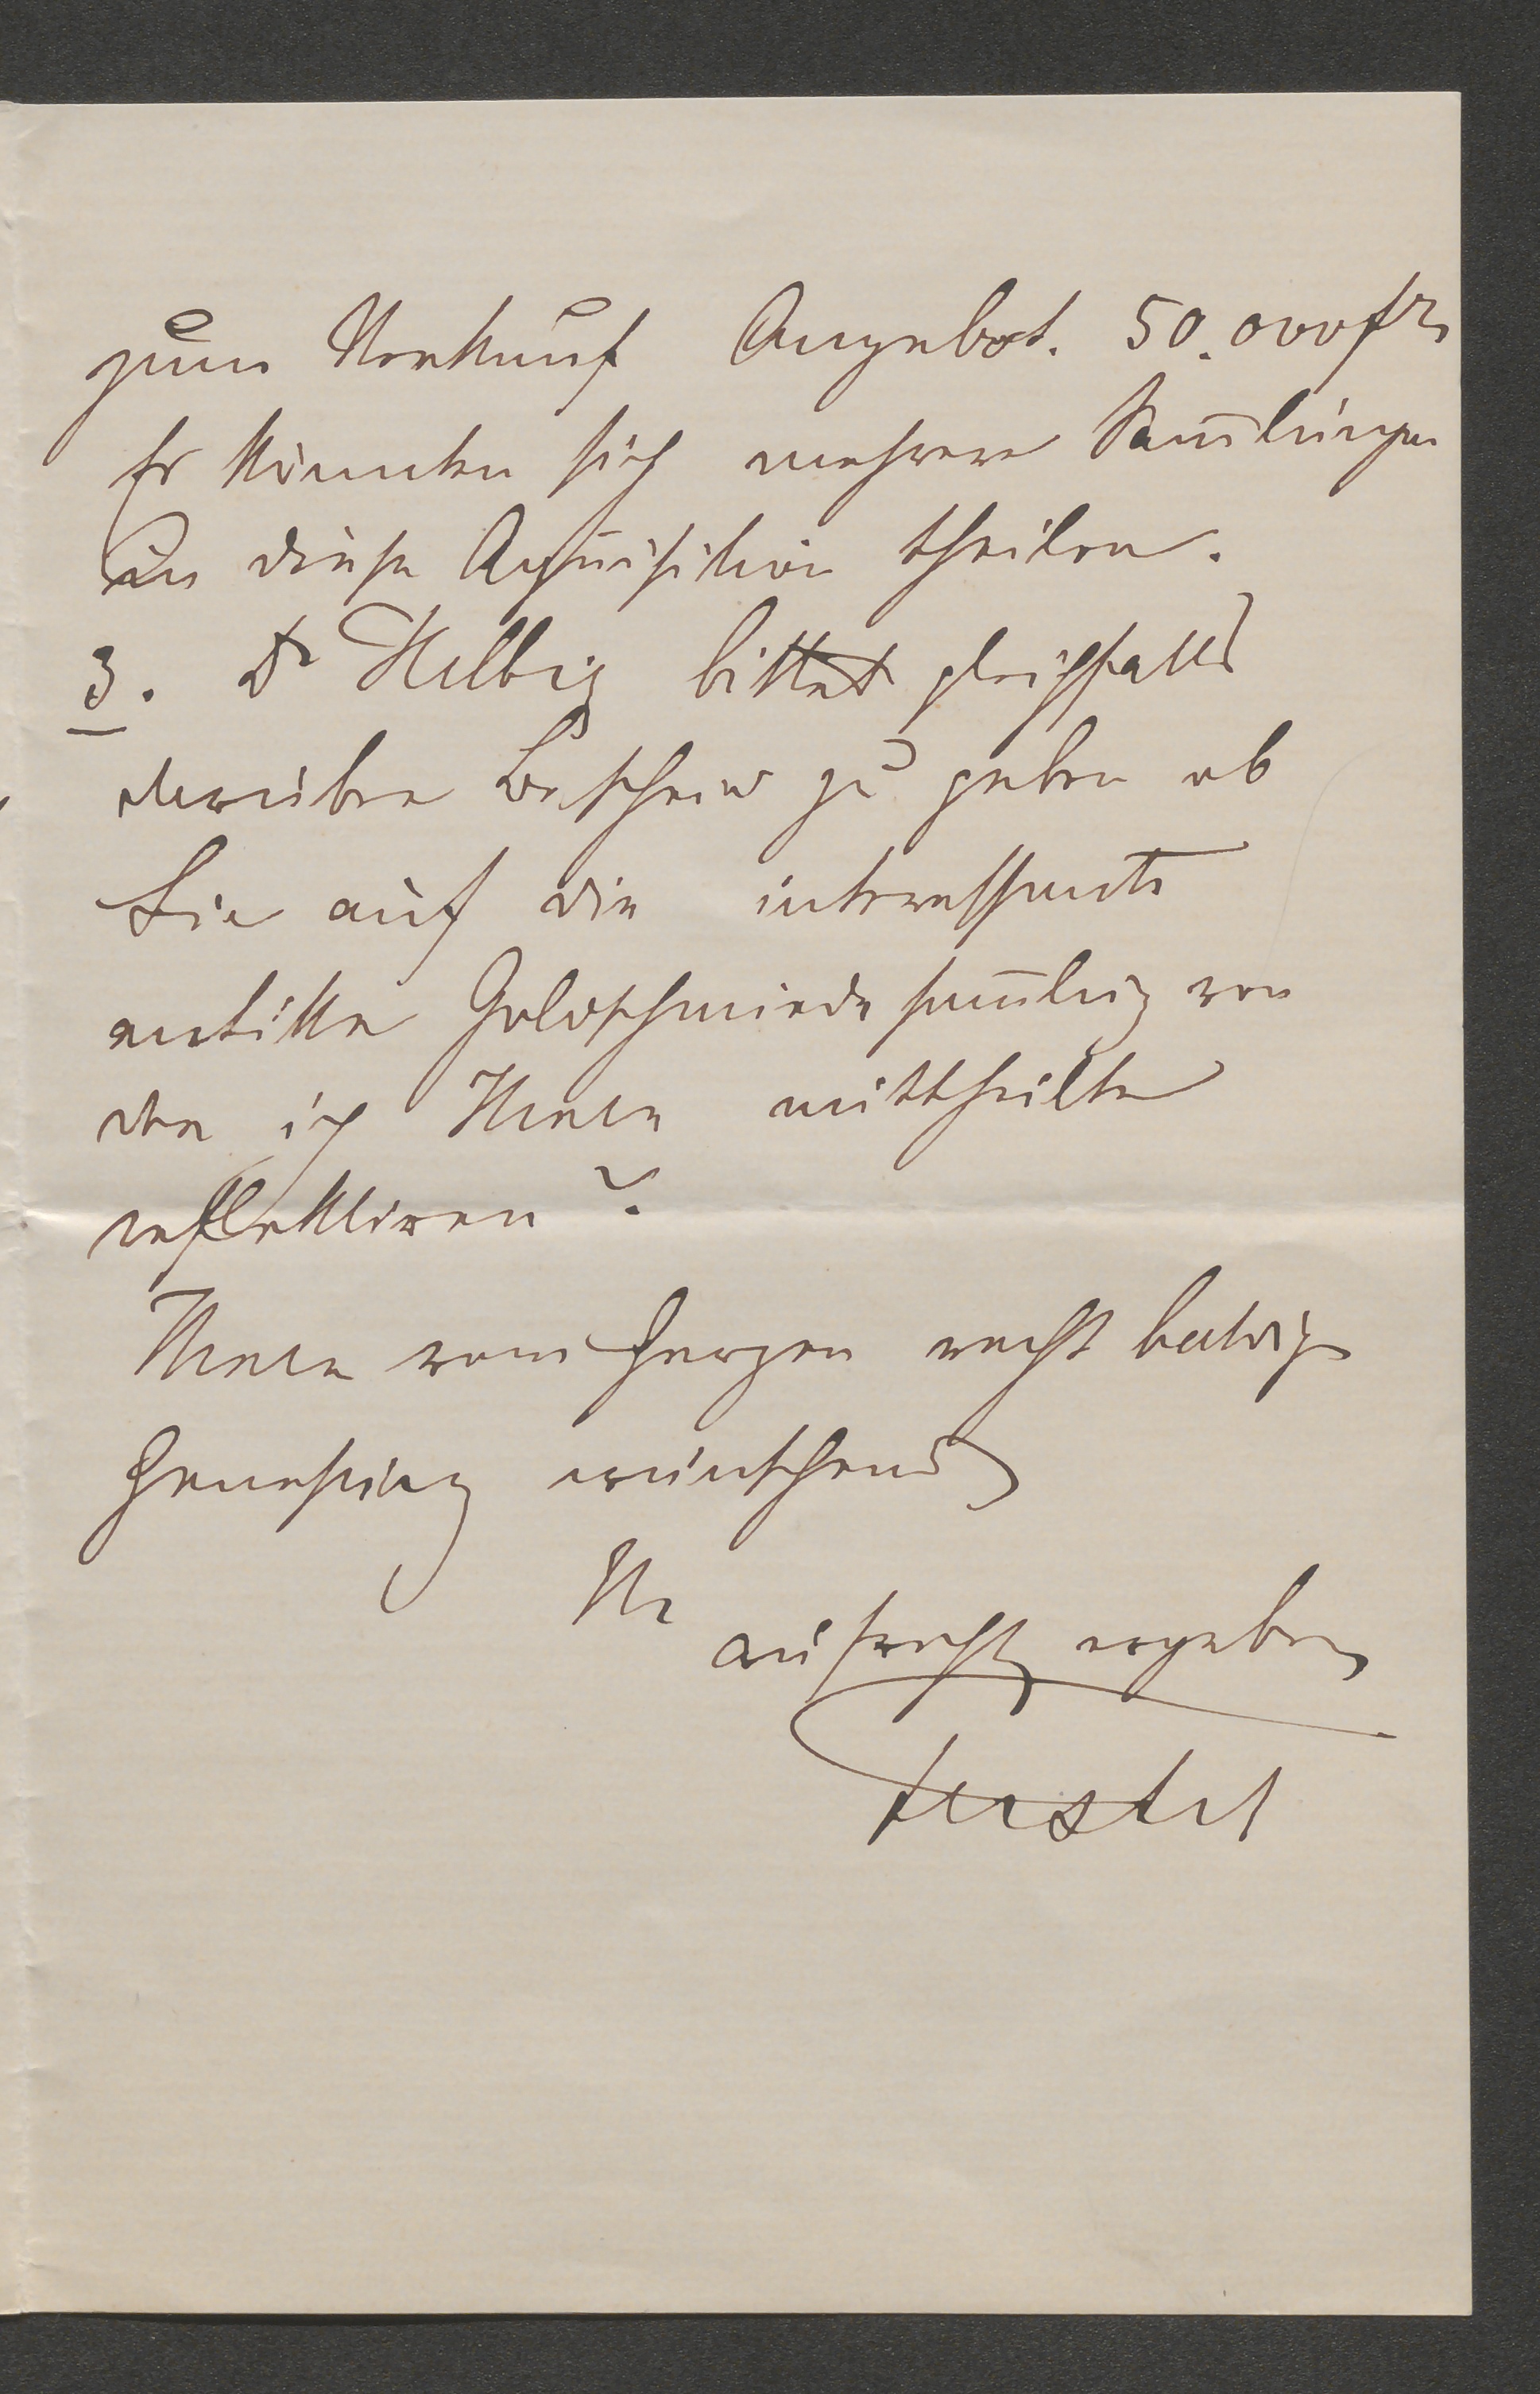 zum Verkauf Angebot. 50.000 frs
Es könnten sich mehrere Sam̅lungen
in diese Aquisition theilen.
3. Dr Helbig bittet gleichfalls
darüber Bescheid zu geben ob
Sie auf die interessante
antike Goldschmiedesam̅lung von
der ich Ihnen mittheilte
reflektiren?
Ihnen vom Herzen recht baldige
Genesung wünschend
Ihr
aufrichtig ergebener
Ferstel